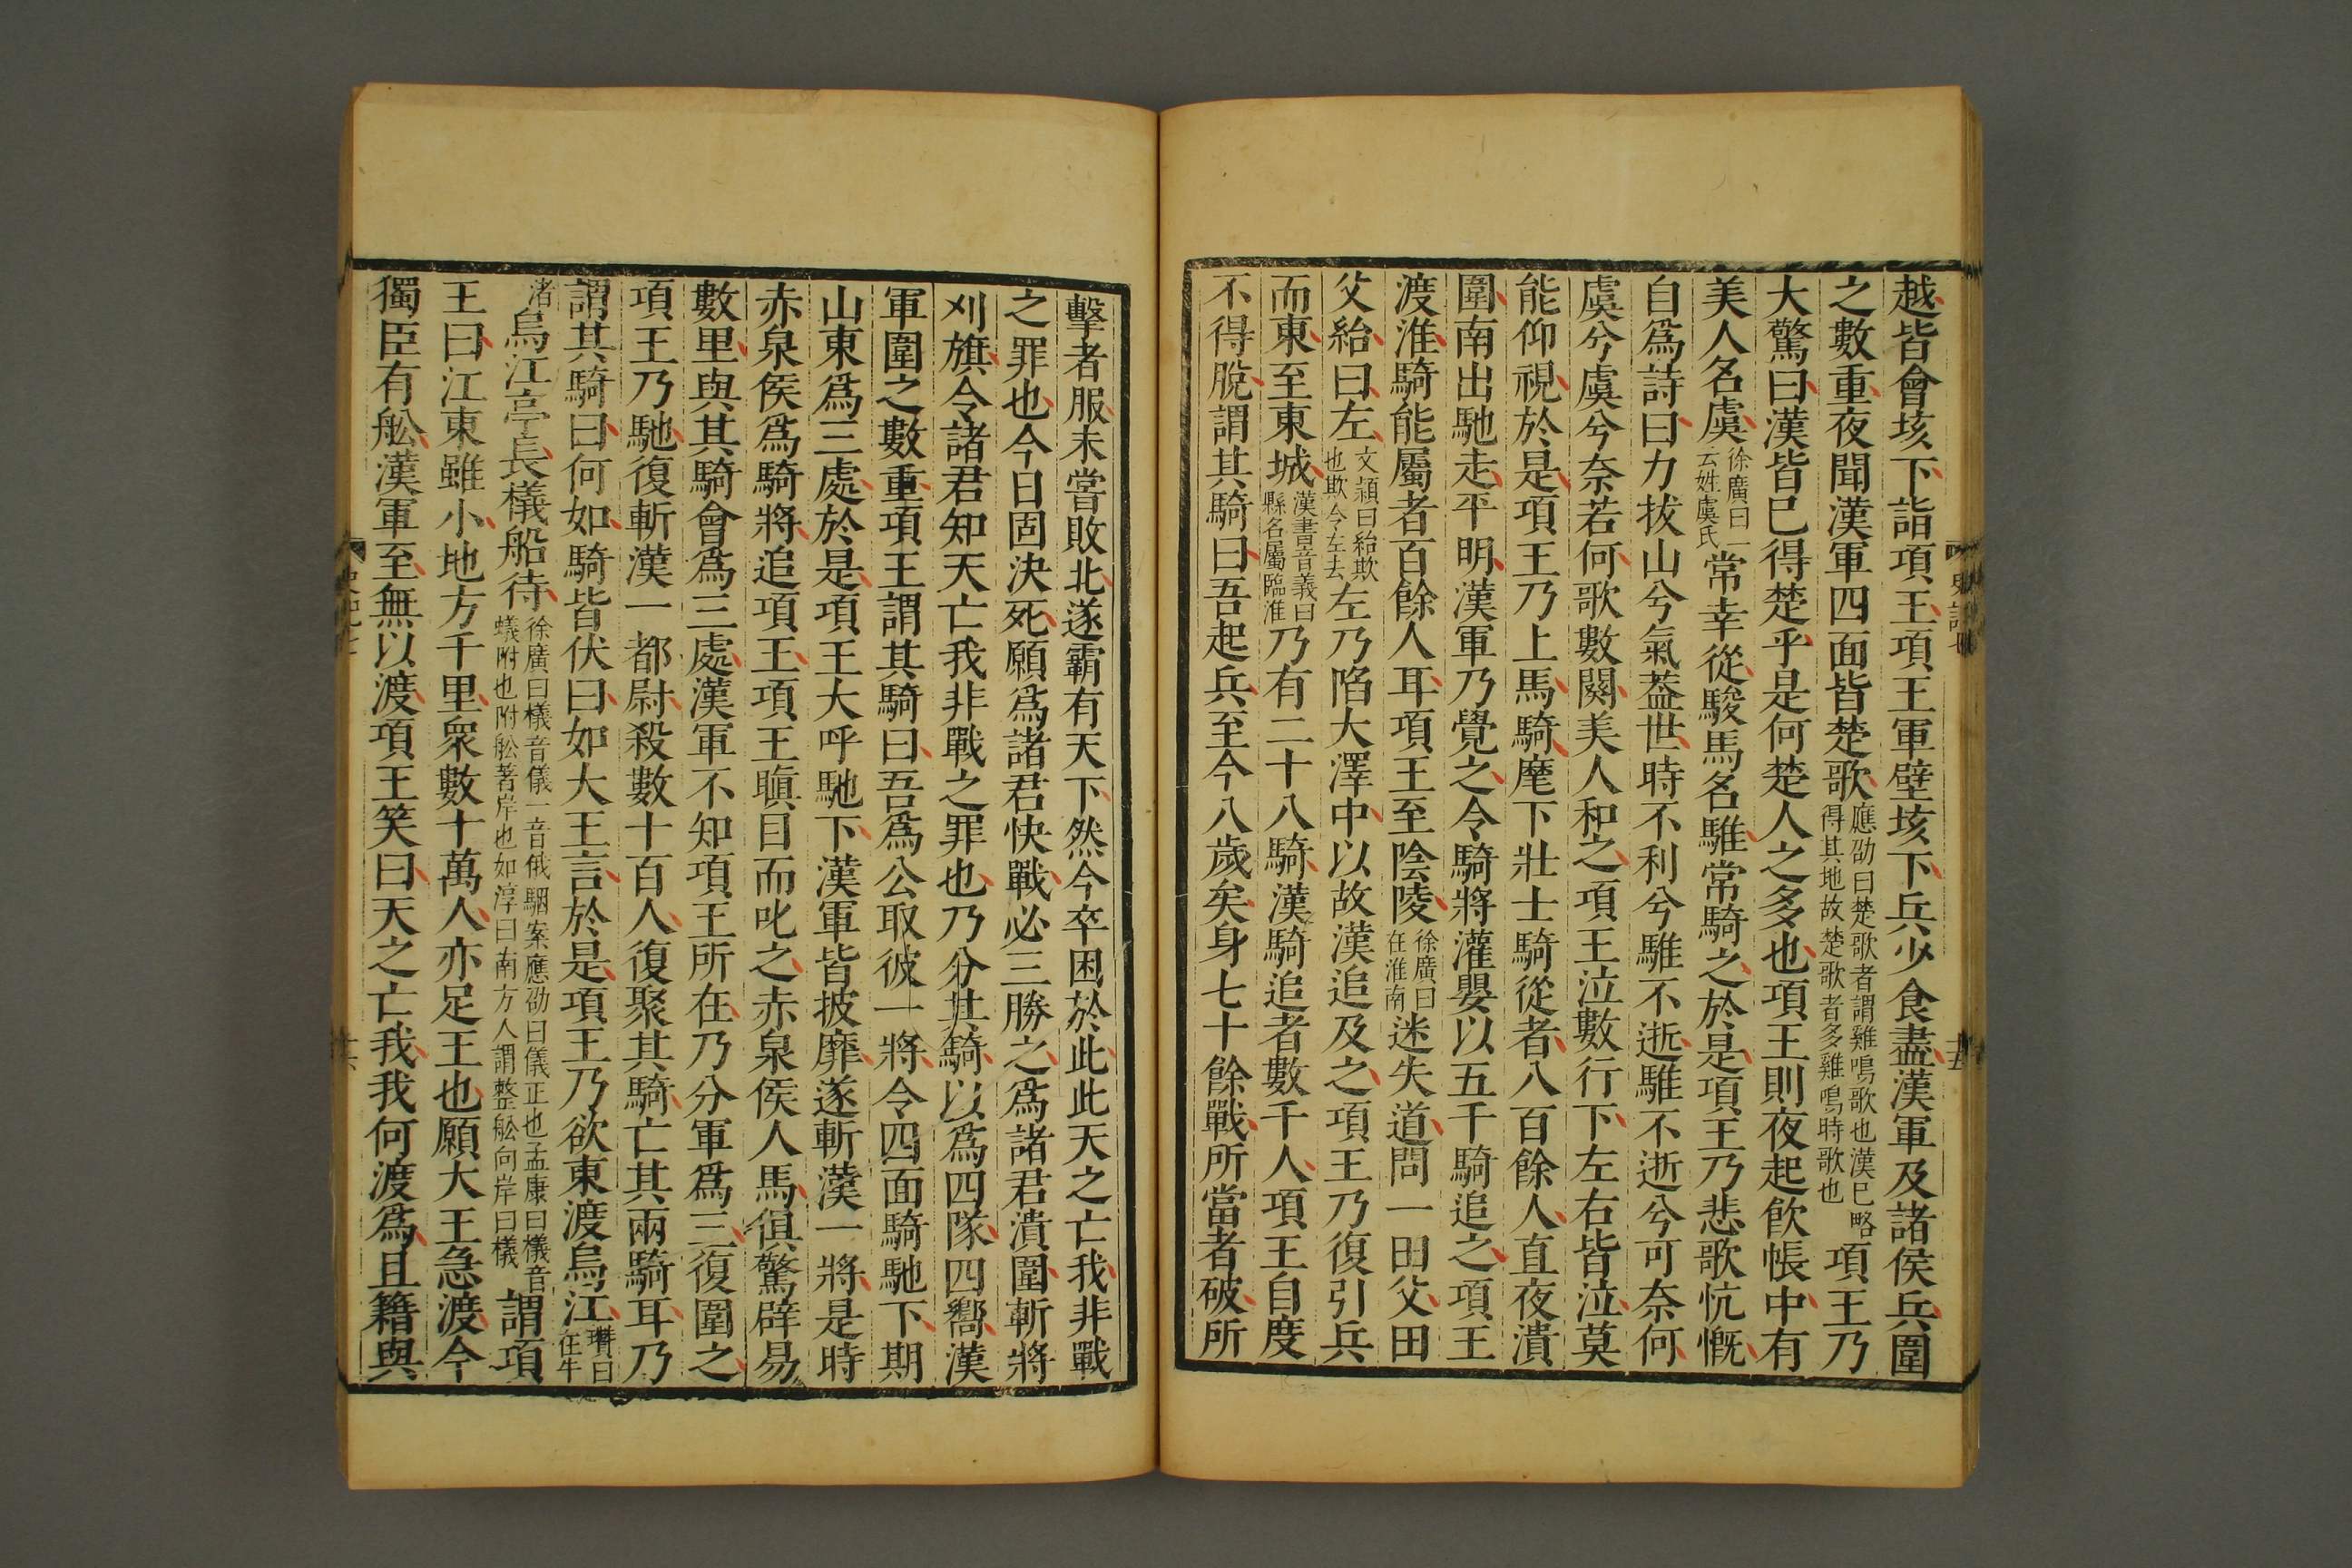 越皆會垓下詣項王項王軍壁垓下兵少食盡漢軍及諸侯兵圍
之數重夜聞漢軍四面皆楚歌應劭曰楚歌者謂雞鳴歌也漢巳略得其地故楚歌者多雞鳴時歌也項王乃
大驚曰漢皆巳得楚乎是何楚人之多也項王則夜起飲帳中有
美人名虞徐廣曰一云姓虞氏常幸從駿馬名騅常騎之於是項王乃悲歌忼慨
自爲詩曰力拔山兮氣葢世時不利兮騅不逝騅不逝兮可奈何
虞兮虞兮奈若何歌數闋美人和之項王泣數行下左右皆泣莫
能仰視於是項王乃上馬騎麾下壯士騎從者八百餘人直夜潰
圍南出馳走平明漢軍乃覺之令騎將灌嬰以五千騎追之項王
渡淮騎能屬者百餘人耳項王至陰陵徐廣曰在淮南迷失道問一田父田
父紿曰左文穎曰紿欺也欺令左去左乃陷大澤中以故漢追及之項王乃復引兵
而東至東城漢書音義曰縣名屬臨淮乃有二十八騎漢騎追者數千人項王自度
不得脫謂其騎曰吾起兵至今八歲矣身七十餘戰所當者破所
擊者服未嘗敗北遂霸有天下然今卒困於此此天之亡我非戰
之罪也今日固決死願爲諸君快戰必三勝之爲諸君潰圍斬將
刈旗令諸君知天亡我非戰之罪也乃分其騎以爲四隊四嚮漢
軍圍之數重項王謂其騎曰吾爲公取彼一將令四面騎馳下期
山東爲三處於是項王大呼馳下漢軍皆披靡遂斬漢一將是時
赤泉侯爲騎將追項王項王瞋目而叱之赤泉侯人馬俱驚辟易
數里與其騎會爲三處漢軍不知項王所在乃分軍爲三復圍之
項王乃馳復斬漢一都尉殺數十百人復聚其騎亡其兩騎耳乃
謂其騎曰何如騎皆伏曰如大王言於是項王乃欲東渡烏江瓚曰在牛
渚烏江亭長檥船待徐廣曰檥音儀一音俄駰案應劭曰儀正也孟康曰檥音蟻附也附舩著岸也如淳曰南方人謂整舩向岸曰檥謂項
王曰江東雖小地方千里衆數十萬人亦足王也願大王急渡今
獨臣有舩漢軍至無以渡項王笑曰天之亡我我何渡爲且籍與
史記七
十五